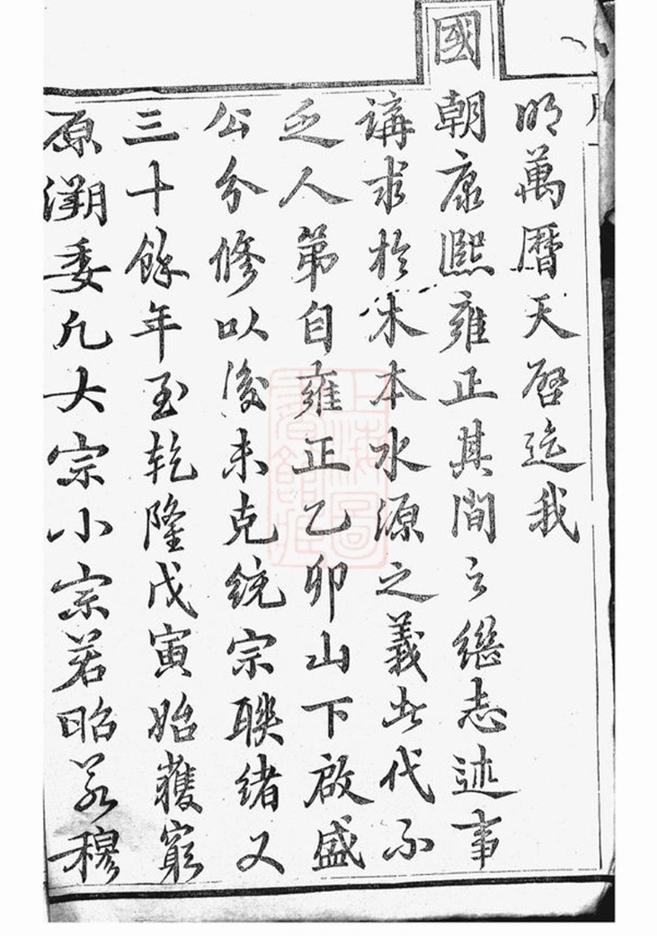 明萬曆天啓迄我
國朝康熙雍正其間之繼志述事
講求於木本水源之義世代不
乏人第自雍正乙卯山下啟盛
公分修以後未克統宗聯緒又
三十餘年至乾隆戊寅始獲窮
原溯委凡大宗小宗若昭若穆